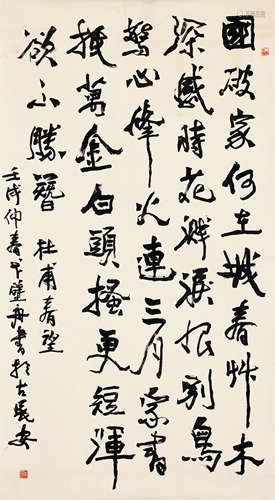 國破家何在城春艸木
深感時花濺淚恨別鳥
驚心烽火連三月家書
抵萬金白頭搔更短渾
欲不勝簪 杜甫春望
壬戌仲春舟書於古長安